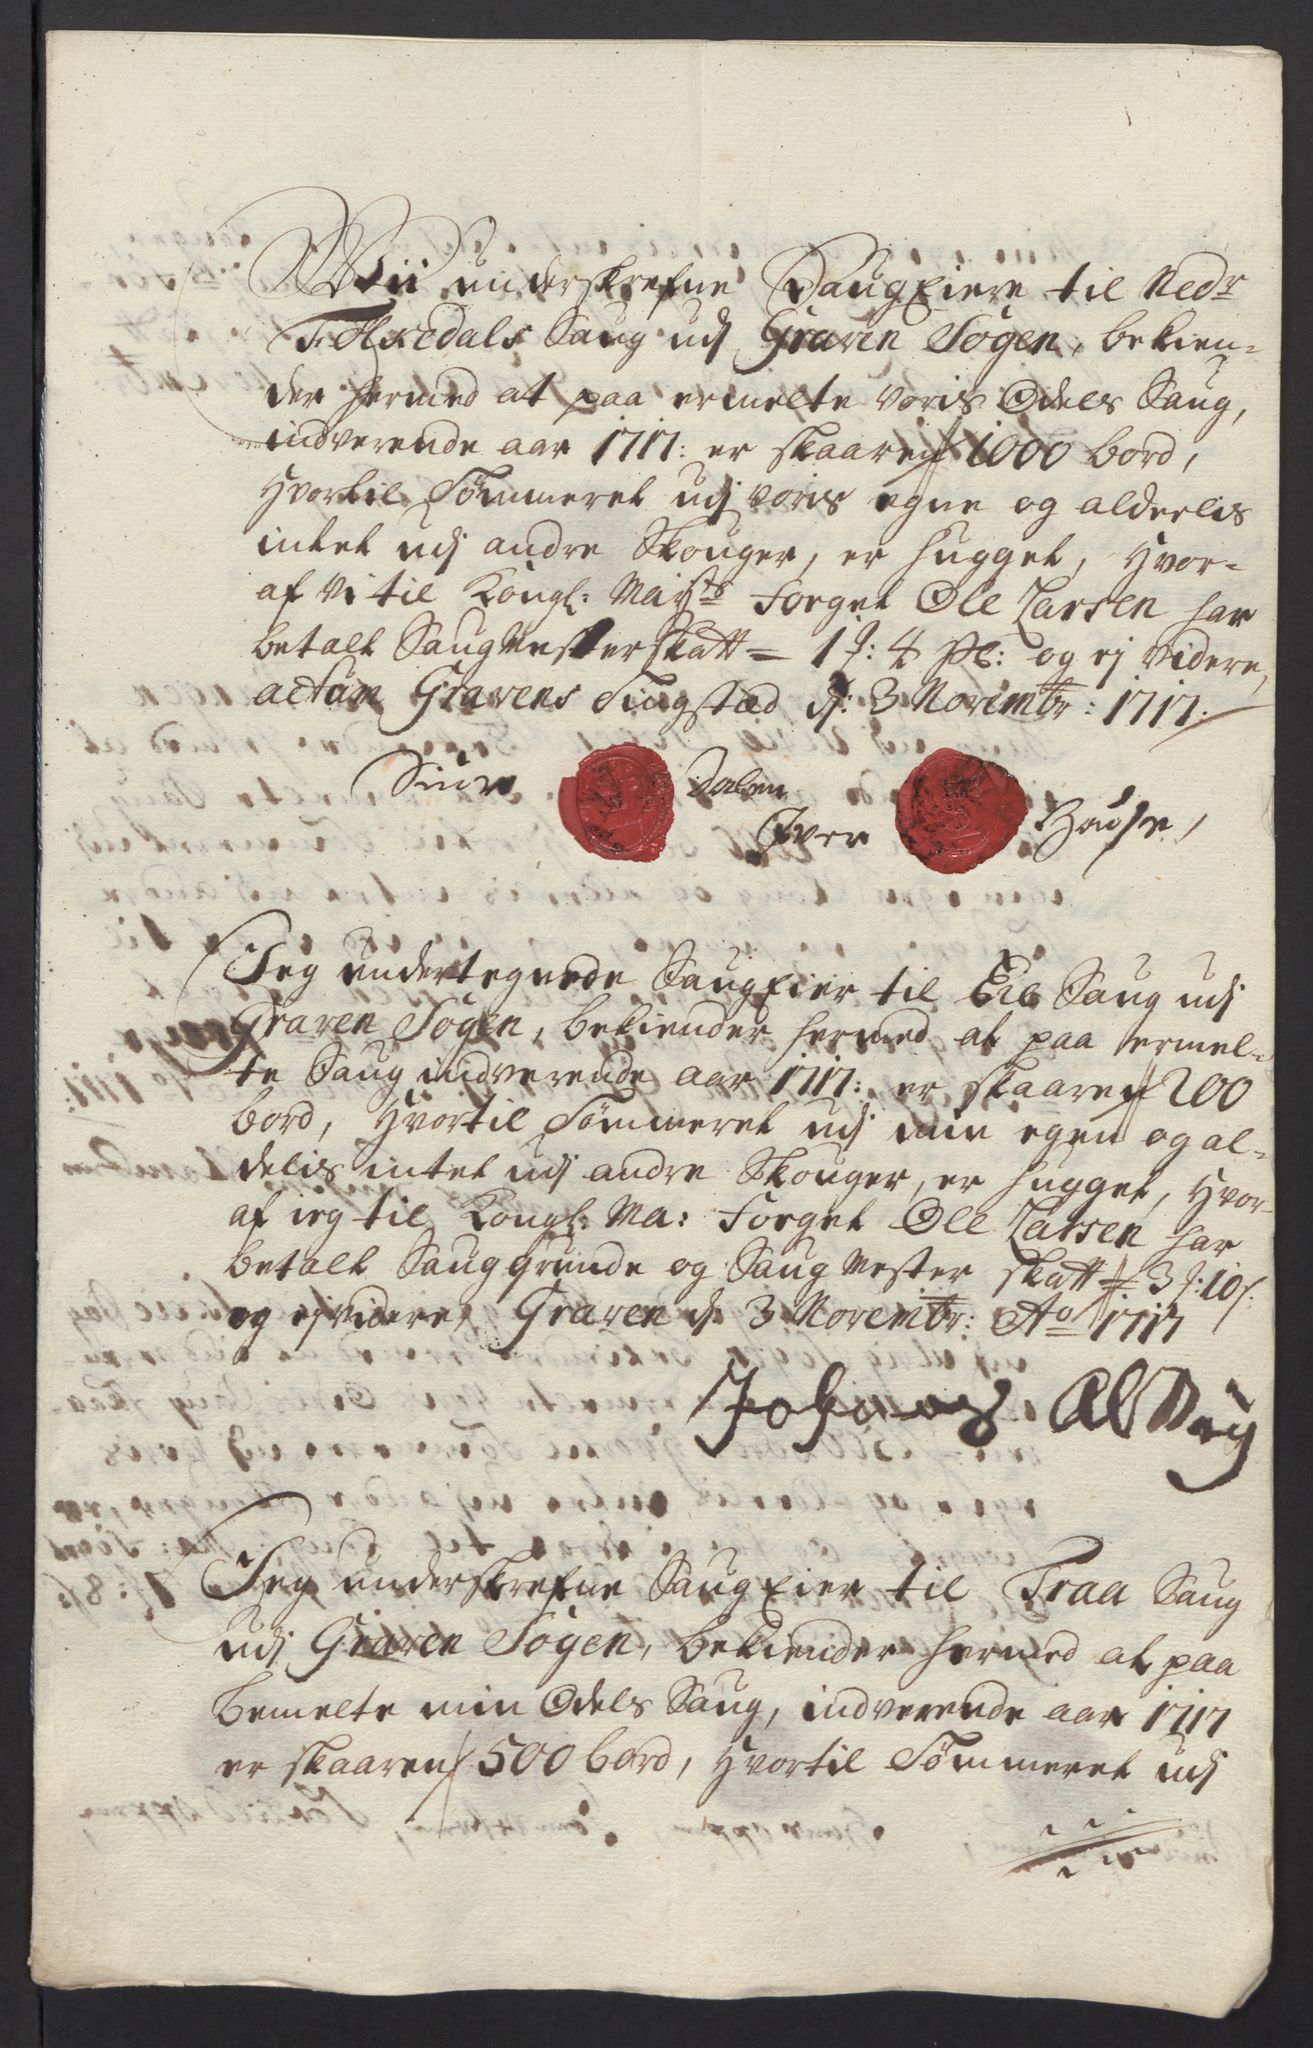 Wii underskrefne Saugeiere til Nedr
Folkedals Saug udj Graven Sogen, bekien-
der hermed at paa ermelte voris Odels Saug,
indverende aar 1717: er skaaren 1000 bord,
Hvortil Tømmeret udj voris egne og alderlis
intet udj andre Skouger, er hugget, Hvor-
af Vi til Kongl: Mayts Foeget Ole Larsen har
betalt SaugMesterskatt = 1 : 4 : og ej Videre,
actum Gravens Tingsted d: 3 Novembr: 1717.
Siur Dalen
Iver Hause,
Jeg undertegnede SaugEier til Eie Saug udj
Graven Sogen, bekiender hermed at paa ermel-
te Saug indverende aar 1717: er skaaren 200
bord, Hvortil Tømmeret udj min egen og al-
delis intet udj andre Skouger, er hugget, Hvor-
af ieg til Kongl: Ma: Foeget Ole Larsen har
betalt Sauggrunde og Saug Mester skatt = 3 : 10 s:
og ej Videre, Graven d: 3 Novembr: Ao 1717
Johanes
Jeg underskrefne SaugEier til Traa Saug
udj Graven Sogen, bekiender hermed at paa
bemelte min Odels Saug, indverende aar 1717
er skaaren 500 bord, Hvortil Tømmeret udj